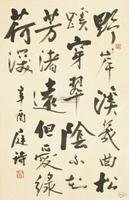 野岸溪幾曲松
蹊穿翠陰不知
芳渚遠但愛綠
荷深
辛酉庭詩